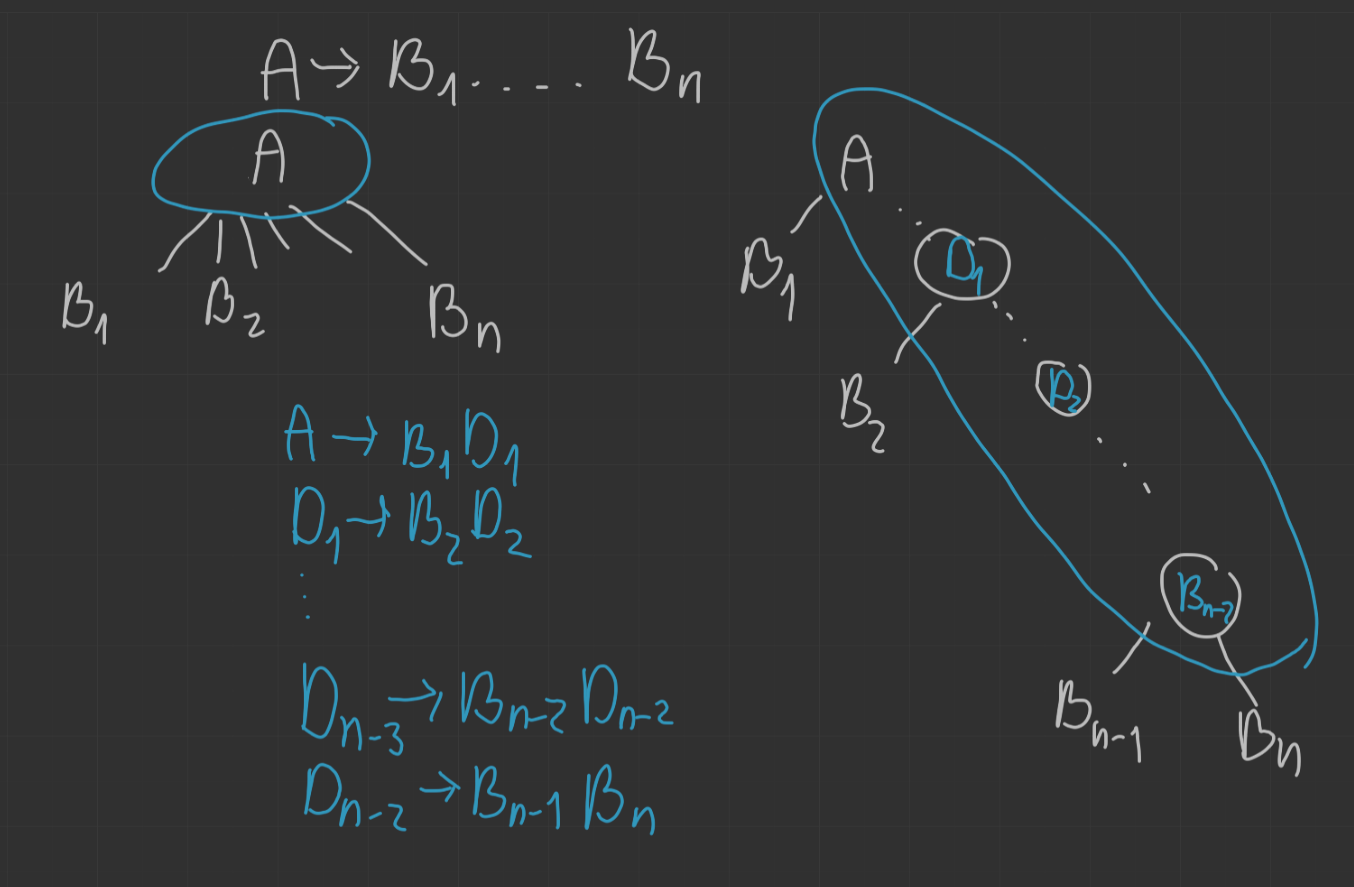 A → B₁ . . . . . Bₙ
A
B₁ B₂ Bₙ
A → B₁ D₁
D₁ → B₂ D₂
⋮
Dₙ₋₃ → Bₙ₋₂ Dₙ₋₂
Dₙ₋₂ → Bₙ₋₁ Bₙ
A
B₁ D₁
B₂ D₂
Bₙ₋₂
Bₙ₋₁ Bₙ